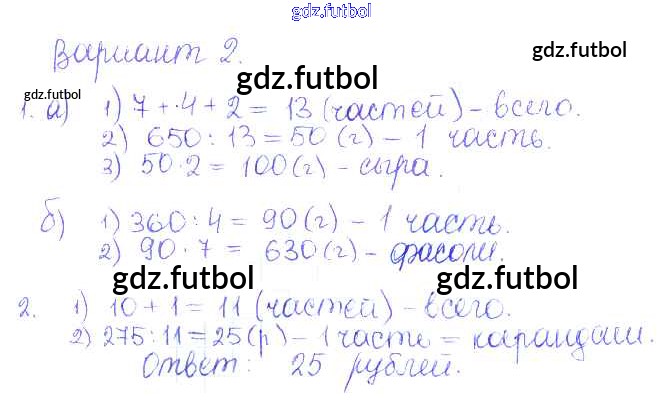 gdz.futbol
Вариант 2.
gdz.futbol
gdz.futbol
gdz.futbol
1. а) 1) 7 + 4 + 2 = 13 (частей) - всего.
2) 650 : 13 = 50 (г) - 1 часть.
3) 50 · 2 = 100 (г) - сыра.
б) 1) 360 : 4 = 90 (г) - 1 часть.
2) 90 · 7 = 630 (г) - фасоли.
gdz.futbol
gdz.futbol
2. 1) 10 + 1 = 11 (частей) - всего.
2) 275 : 11 = 25 (р) - 1 часть = карандаш.
Ответ: 25 рублей.